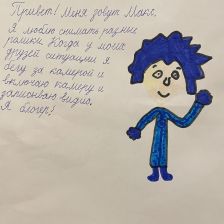 Привет! Меня зовут Макс.
Я люблю снимать разные
ролики. Когда у моих
друзей ситуации я
бегу за камерой и
включаю камеру и
записываю видио.
Я блогер!